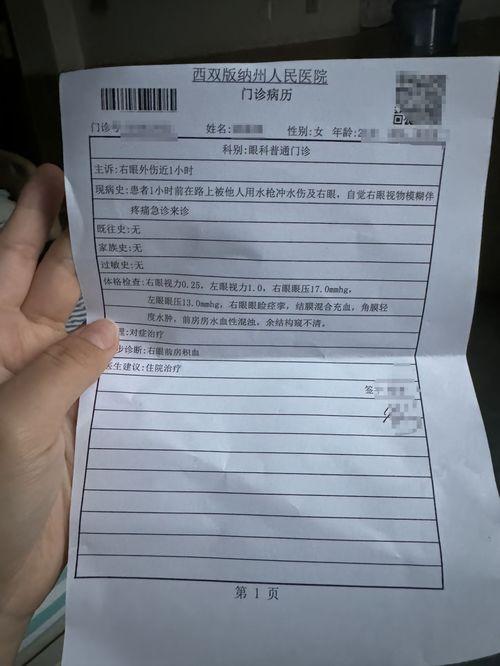 西双版纳州人民医院
门诊病历
门诊号 姓名: 性别:女 年龄:2
科别:眼科普通门诊
主诉:右眼外伤近1小时
现病史:患者1小时前在路上被他人用水枪冲水伤及右眼,自觉右眼视物模糊伴
疼痛急诊来诊
既往史:无
家族史:无
过敏史:无
体格检查:右眼视力0.25,左眼视力1.0,右眼眼压17.0mmhg,
左眼眼压13.0mmhg,右眼眼睑痉挛,结膜混合充血,角膜轻
度水肿,前房房水血性混浊,余结构窥不清。
理:对症治疗
步诊断:右眼前房积血
医生建议:住院治疗
签
第 1 页